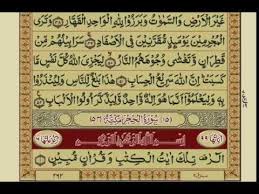 غَيْرَ الْاَرْضِ وَالسَّمٰوٰتُ وَبَرَزُوْا لِلّٰهِ الْوَاحِدِ الْقَهَّارِ ۝ وَتَرَى
الْمُجْرِمِيْنَ يَوْمَئِذٍ مُّقَرَّنِيْنَ فِى الْاَصْفَادِ ۝ سَرَابِيْلُهُمْ مِّنْ
قَطِرَانٍ وَّتَغْشٰى وُجُوْهَهُمُ النَّارُ ۝ لِيَجْزِىَ اللّٰهُ كُلَّ نَفْسٍ مَّا
كَسَبَتْ اِنَّ اللّٰهَ سَرِيْعُ الْحِسَابِ ۝ هٰذَا بَلٰغٌ لِّلنَّاسِ وَلِيُنْذَرُوْا
بِهٖ وَلِيَعْلَمُوْٓا اَنَّمَا هُوَ اِلٰهٌ وَّاحِدٌ وَّلِيَذَّكَّرَ اُولُوا الْاَلْبَابِ ۝
(۱۵) سُوْرَةُ الْحِجْرِ مَكِّيَّةٌ (۵۴)
اٰيَاتُهَا ۹۹ بِسْمِ اللّٰهِ الرَّحْمٰنِ الرَّحِيْمِ رُكُوْعَاتُهَا ۶
الٓرٰ تِلْكَ اٰيٰتُ الْكِتٰبِ وَقُرْاٰنٍ مُّبِيْنٍ ۝